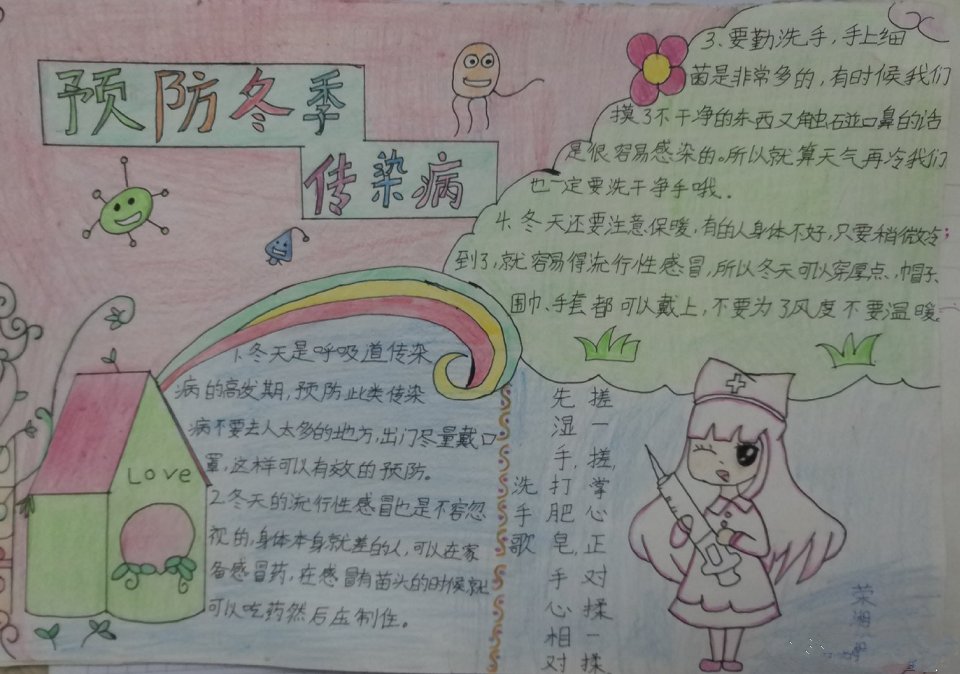 预防冬季
传染病
1.冬天是呼吸道传染
病的高发期,预防此类传染
病不要去人太多的地方,出门尽量戴口
罩,这样可以有效的预防。
2.冬天的流行性感冒也是不容忽
视的,身体本身就差的人,可以在家
备感冒药,在感冒有苗头的时候就
可以吃药然后压制住。
Love
3.要勤洗手,手上细
菌是非常多的,有时候我们
摸了不干净的东西又触碰口鼻的话
是很容易感染的。所以就算天气再冷我们
也一定要洗干净手哦..
4.冬天还要注意保暖,有的人身体不好,只要稍微冷
到了,就容易得流行性感冒,所以冬天可以穿厚点,帽子、
围巾、手套都可以戴上,不要为了风度不要温暖
洗手歌
先湿手,打肥皂手心相对
搓一搓,掌心正对揉一揉